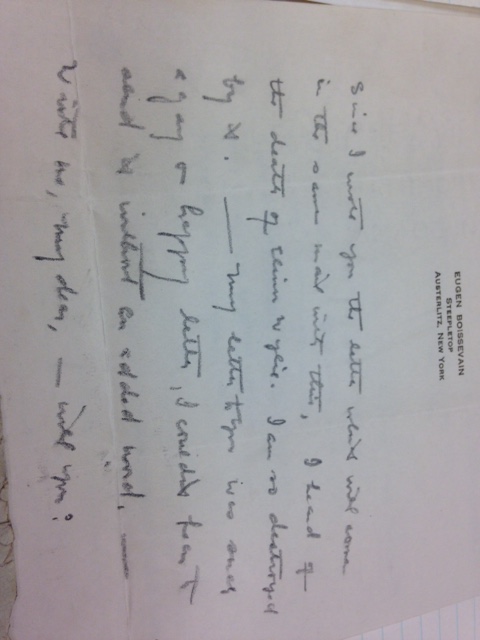 EUGEN BOISSEVAIN
STEEPLETOP
AUSTERLITZ, NEW YORK
Since I wrote you the letter which will come
in the same mail with this, I heard of
the death of Elinor Wylie. I am so destroyed
by it. — My letter to you was such
a gay & happy letter, I couldn't bear to
send it without an added word. —
Write me, my dear, — will you?